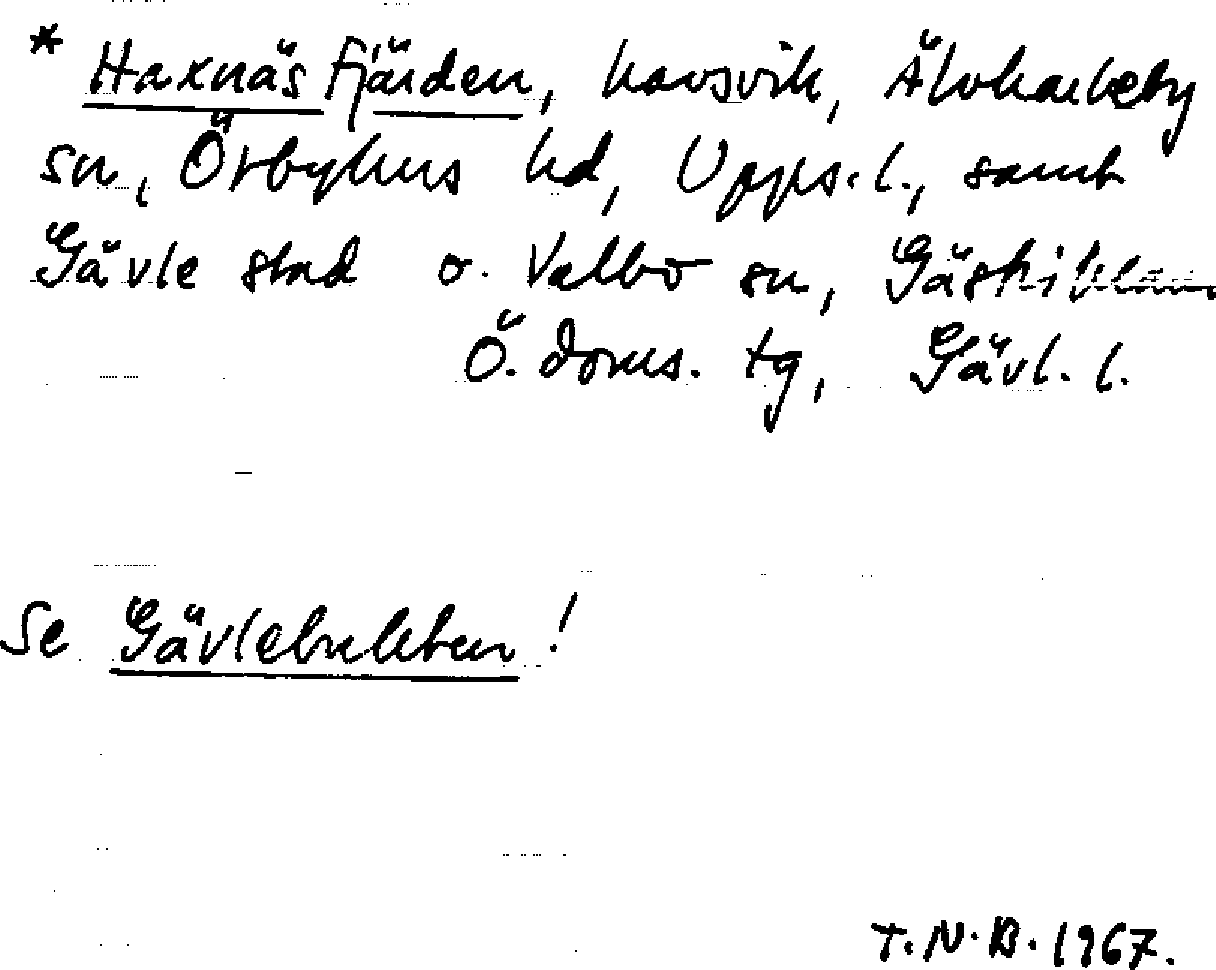 * Haxnäsfjärden, havsvik, Älvkarleby
sn, Örbyhus hd, Upps. l., samt
Gävle stad o. Valbo sn, Gästriklan
Ö. doms. tg, Gävl. l.
Se Gävlebukten!
T.N.B. 1967.